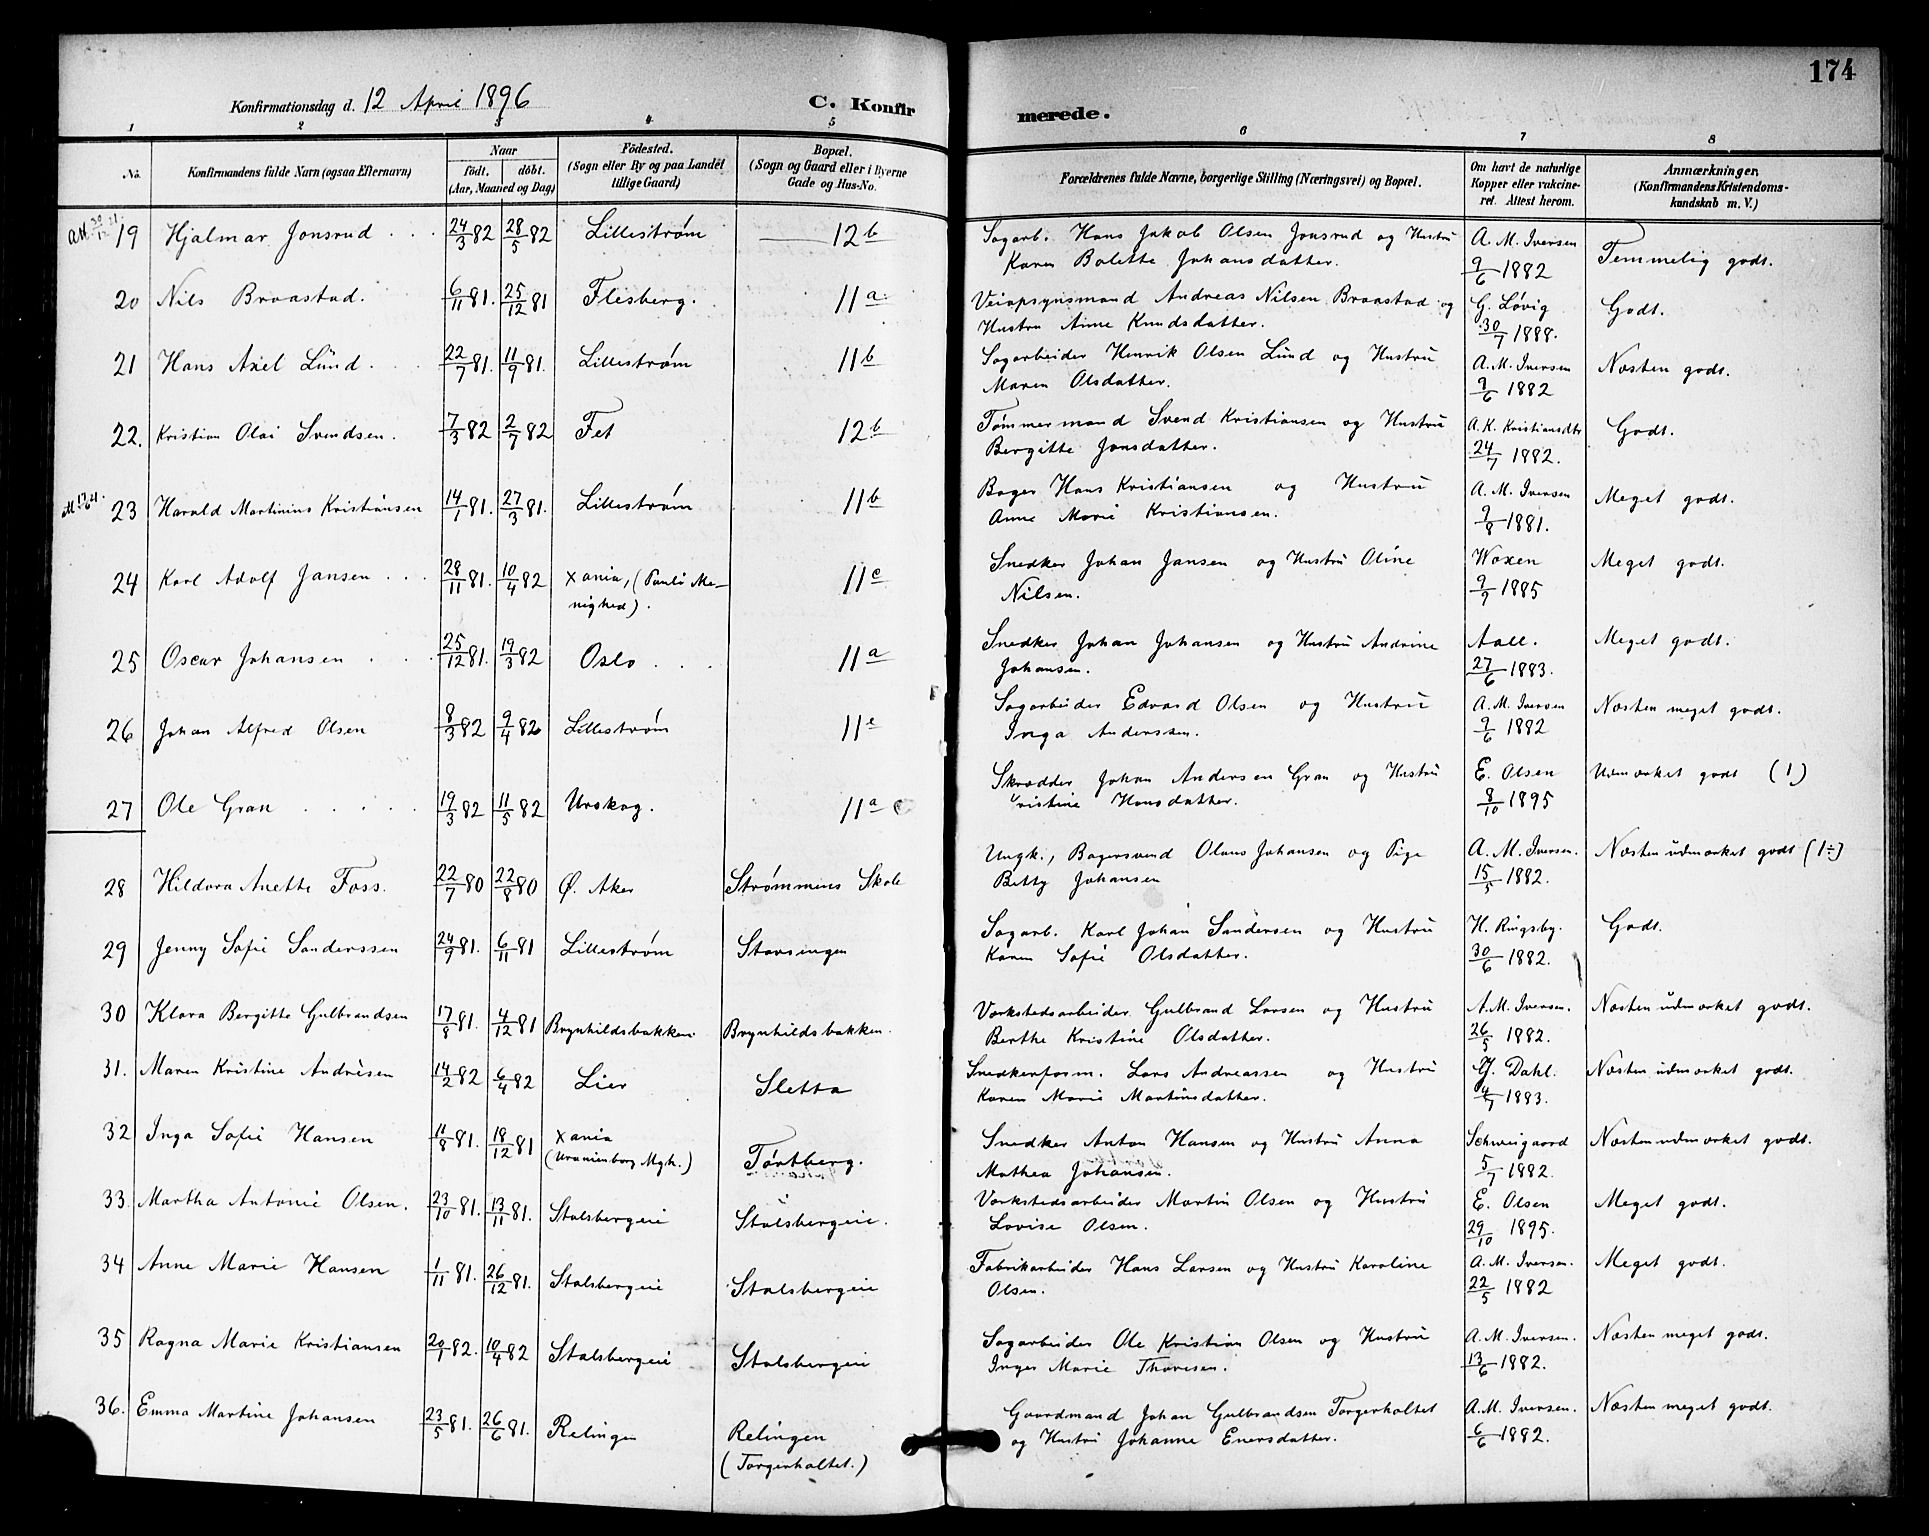 174
Konfirmationsdag d. 12 April 1896
C. Konfirmerede.
1 2 3 4 5 6 7 8
No.
Konfirmandens fulde Navn (ogsaa Efternavn)
Naar
født. døbt.
(Aar, Maaned og Dag)
Fødested.
(Sogn eller By og paa Landet
tillige Gaard)
Bopæl.
(Sogn og Gaard eller i Byerne
Gade og Hus-No.
Forældrenes fulde Navne, borgerlige Stilling (Næringsvei) og Bopæl.
Om havt de naturlige
Kopper eller vakcine-
ret. Attest herom.
Anmærkninger.
(Konfirmandens Kristendoms-
kundskab m. V.)
19 Hjalmar Jonsrud 24/3 82 28/5 82 Lillestrøm 12 b Sagarb. Hans Jakob Olsen Jonsrud og Hustru A. M. Iversen Temmelig godt.
Karen Bolette Johansdatter. 9/6 1882
20 Nils Braastad. 6/11 81. 25/12 81 Flesberg. 11 a Veiopsynsmand Andreas Nilsen Braastad og G. Løvig Godt.
Hustru Anne Knudsdatter. 30/7 1888.
21 Hans Axel Lund. 22/7 81. 11/9 81. Lillestrøm 11 b Sagarbeider Henrik Olsen Lund og Hustru A. M. Iversen Næsten godt.
Maren Olsdatter. 9/6 1882
22. Kristian Olai Svendsen. 7/3 82 2/7 82 Fet 12 b Tømmermand Svend Kristiansen og Hustru A. K. Kristiansdtr Godt.
Bergitte Jonsdatter. 24/7 1882.
23 Harald Martinius Kristiansen 14/1 81. 27/3 81. Lillestrøm 11 b Bager Hans Kristiansen og Hustru A. M. Iversen Meget godt.
Anne Marie Kristiansen. 9/8 1881.
24 Karl Adolf Jansen 28/11 81. 10/4 82 Xania, (Pauli Me- 11 c Snedker Johan Jansen og Hustru Oline Woxen Meget godt.
nighed). Nilsen. 9/9 1885
25 Oscar Johansen 25/12 81. 19/3 82 Oslo 11 a Snedker Johan Johansen og Hustru Andrine Aall. Meget godt.
Johansen. 27/6 1883.
26 Johan Alfred Olsen 8/3 82 9/4 82 Lillestrøm 11 c Sagarbeider Edvard Olsen og Hustru A. M. Iversen Næsten meget godt.
Inga Anderssen. 9/6 1882
27 Ole Gran 19/3 82 11/5 82 Urskog. 11 a Skrædder Johan Andersen Gran og Hustru E. Olsen Udmærket godt (1)
Kristine Hansdatter. 8/10 1895
28 Hildora Anette Foss. 22/7 80 22/8 80 Ø. Aker Strømmens Skole Ungk., Bagersvend Olaus Johansen og Pige A. M. Iversen. Næsten udmærket godt (1÷)
Betty Johansen 15/5 1882.
29 Jenny Sofie Sanderssen 24/9 81. 6/11 81 Lillestrøm Stavsingen Sagarb. Karl Johan Sandersen og Hustru H. Ringsby. Godt.
Karen Sofie Olsdatter. 30/6 1882.
30 Klara Bergitte Gulbrandsen 17/8 81. 4/12 81 Brynhildsbakken Brynhildsbakken. Værkstedsarbeider Gulbrand Larsen og Hustru A. M. Iversen. Næsten udmærket godt.
Berthe Kristine Olsdatter. 26/5 1882.
31. Maren Kristine Andresen 14/2 82 6/4 82 Lier Sletta Snedkerform. Lars Andreassen og Hustru G. Dahl. Næsten udmærket godt.
Karen Marie Martinsdatter. 4/7 1883.
32 Inga Sofie Hansen 11/8 81. 18/12 81 Xania Tørtberg. Snedker Anton Hansen og Hustru Anna Schweigaard Næsten udmærket godt.
(Uranienborg Mgh.) Mathea Johansen. 5/7 1882.
33. Martha Antonie Olsen. 23/10 81. 13/11 81. Stalsbergeie Stalsbergeie. Værkstedsarbeider Martin Olsen og Hustru E. Olsen Meget godt.
Lovise Olsen. 29/10 1895.
34 Anne Marie Hansen 1/11 81. 26/12 81. Stalsbergeie Stalsbergeie Fabrikarbeider Hans Larsen og Hustru Karoline A. M. Iversen. Meget godt.
Olsen. 22/5 1882
35 Ragna Marie Kristiansen 20/1 82. 10/4 82 Stalsbergeie Stalsbergeie Sagarbeider Ole Kristian Olsen og Hustru A. M. Iversen. Næsten meget godt.
Inger Marie Thoresen. 13/6 1882.
36. Emma Martine Johansen 23/5 81. 26/6 81. Relingen Relingen Gaardmand Johan Gulbrandsen Torgerholtet A. M. Iversen. Næsten meget godt.
(Torgerholtet.) og Hustru Johanne Enersdatter. 6/6 1882.